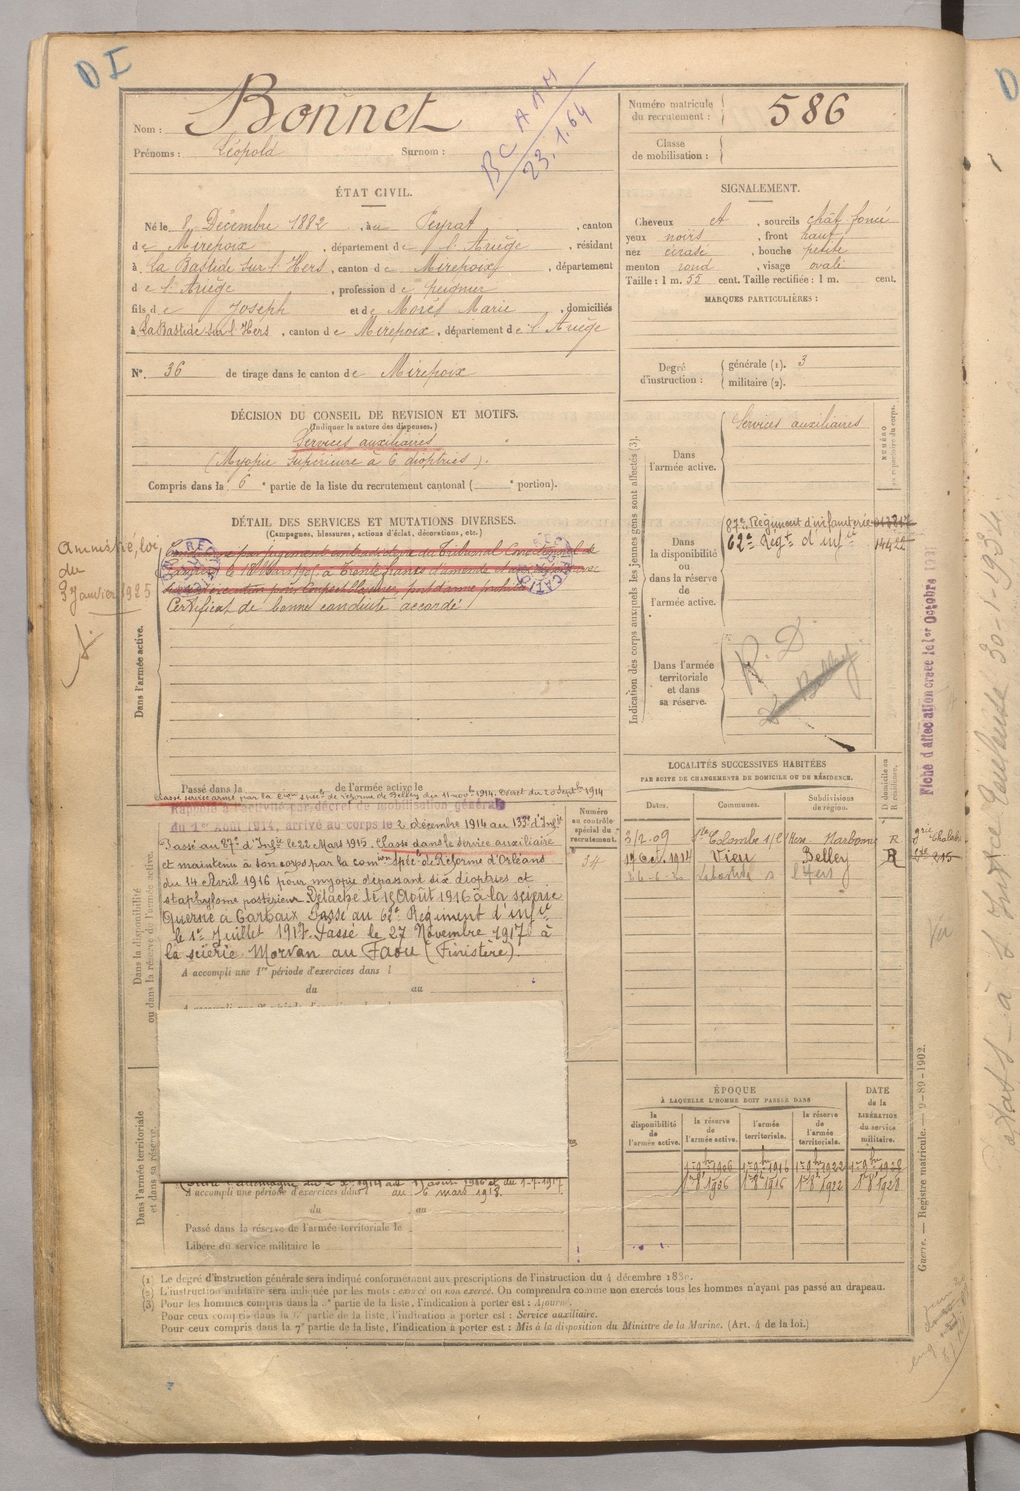 D I
Nom : Bonnet
Prénoms : Léopold Surnom :
BCAAM
23.1.64
Numéro matricule du recrutement : 586
Classe de mobilisation :
ÉTAT CIVIL.
Né le 8 Décembre 1882, à Peyrat, canton
de Mirepoix, département de l'Ariège, résidant
à la Bastide sur l'Hers, canton de Mirepoix, département
de l'Ariège, profession de peignier
fils de Joseph et de Morés Marie, domiciliés
à La Bastide sur l'Hers, canton de Mirepoix, département de l'Ariège
N°. 36 de tirage dans le canton de Mirepoix
SIGNALEMENT.
Cheveux et, sourcils chât foncé
yeux noirs, front haut
nez écrasé, bouche petite
menton rond, visage ovale
Taille : 1 m. 55 cent. Taille rectifiée : 1 m. cent.
MARQUES PARTICULIÈRES :
Degré d'instruction : générale (1). 3
militaire (2).
DÉCISION DU CONSEIL DE REVISION ET MOTIFS.
(Indiquer la nature des dispenses.)
Services auxiliaires
(Myopie supérieure à 6 dioptries).
Compris dans la 6e partie de la liste du recrutement cantonal ( e portion).
DÉTAIL DES SERVICES ET MUTATIONS DIVERSES.
(Campagnes, blessures, actions d'éclat, décorations, etc.)
Amnistié, loi
du
3 janvier 1925
Dans l'armée active.
par jugement contradictoire du Tribunal Correctionnel de
à trente francs d'amende
Certificat de bonne conduite accordé
Indication des corps auxquels les jeunes gens sont affectés (3).
Dans l'armée active.
Services auxiliaires
NUMÉRO
Dans la disponibilité ou dans la réserve de l'armée active.
87e Régiment d'infanterie
62e Régt d'infie 14422
Dans l'armée territoriale et dans sa réserve.
R. D.
Belley
Fiche d'affectation créée le 1er Octobre
LOCALITÉS SUCCESSIVES HABITÉES
PAR SUITE DE CHANGEMENTS DE DOMICILE OU DE RÉSIDENCE.
Dates. Communes. Subdivisions de région. D domicile ou R résidence.
3/2.09 Ste Colombe s/l'Hers Narbonne R
1er Oct. 1914 Vieu Belley R
Labastide s l'Hers
Passé dans la de l'armée active le
Classé service armé par la Cion spéc. de réforme de Belley du 11 novbre 1914. Décret du 20 Septbre 1914
Rappelé à l'activité par décret de mobilisation générale
du 1er Août 1914, arrivé au corps le 2 décembre 1914 au 133e d'Infie
Passé au 87e d'Infie le 22 Mars 1915. Classé dans le service auxiliaire
et maintenu à son corps par la comion spéle de Réforme d'Orléans
du 14 Avril 1916 pour myopie dépassant six dioptries et
staphylome postérieur. Détaché le 15 Août 1916 à la scierie
Querné à Garbaix. Passé au 62e Régiment d'infie
le 1er Juillet 1917. Passé le 27 Novembre 1917 à
la scierie Morvan au Faou (Finistère).
Numéro au contrôle spécial du recrutement.
34
Dans la disponibilité ou dans la réserve de l'armée active.
A accompli une 1re période d'exercices dans l
du au
Dans l'armée territoriale et dans sa réserve.
Août 1916 et du 1-7-1917
A accompli une période d'exercices dans l au 6 mars 1918.
du au
Passé dans la réserve de l'armée territoriale le
Libéré du service militaire le
ÉPOQUE
À LAQUELLE L'HOMME DOIT PASSER DANS
la disponibilité de l'armée active.
la réserve de l'armée active.
l'armée territoriale.
la réserve de l'armée territoriale.
DATE de la LIBÉRATION du service militaire.
1er 9bre 1906 1er 9bre 1916 1er 9bre 1922 1er 9bre 1928
1er 8bre 1906 1er 8bre 1916 1er 8bre 1922 1er 8bre 1928
Guerre. — Registre matricule. — 9-89-1902.
(1) Le degré d'instruction générale sera indiqué conformément aux prescriptions de l'instruction du 4 décembre 1889.
(2) L'instruction militaire sera indiquée par les mots : exercé ou non exercé. On comprendra comme non exercés tous les hommes n'ayant pas passé au drapeau.
(3) Pour les hommes compris dans la 5e partie de la liste, l'indication à porter est : Ajourné.
Pour ceux compris dans la 6e partie de la liste, l'indication à porter est : Service auxiliaire.
Pour ceux compris dans la 7e partie de la liste, l'indication à porter est : Mis à la disposition du Ministre de la Marine. (Art. 4 de la loi.)